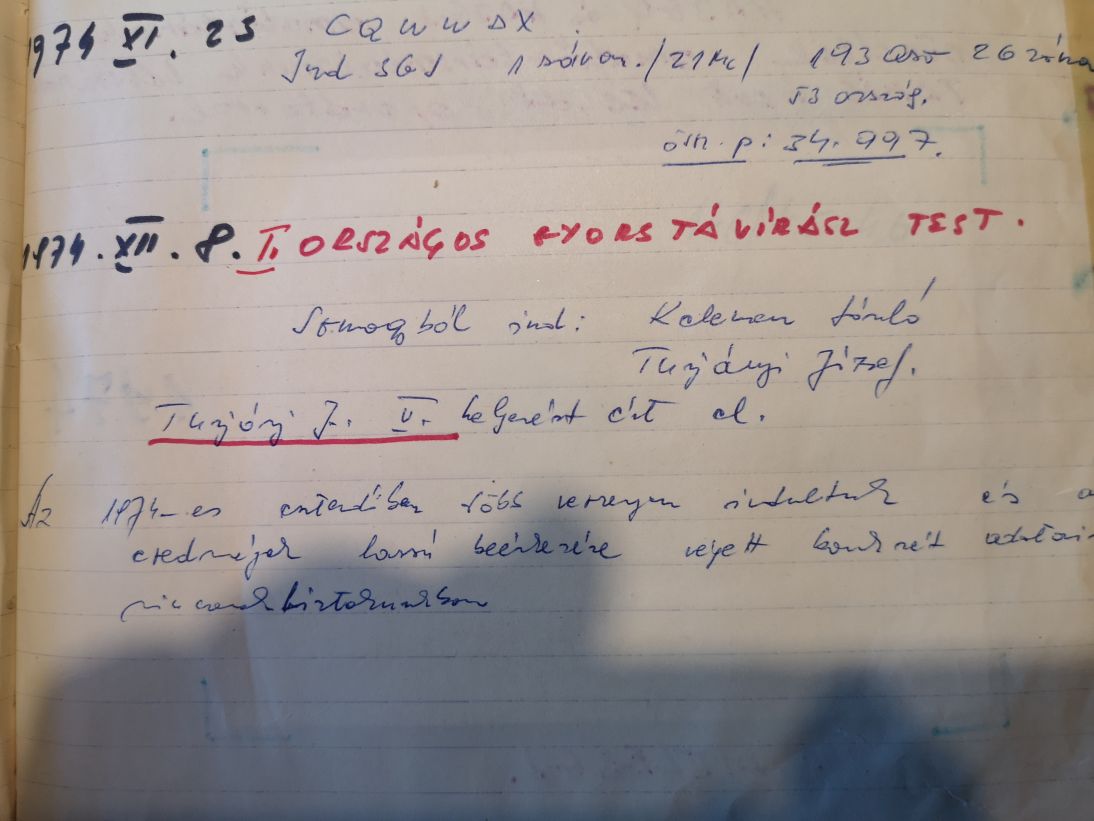 1974 XI. 23 CQ WW DX.
Ind 3GJ 1 sávon. /21Mc/ 193 QSO 26 zóna
53 ország.
össz. p: 34.997.
1974. XII. 8. I. ORSZÁGOS GYORSTÁVIRÁSZ TEST.
Somogyból ind: Kelemen László
Turjányi József.
Turjányi J. V. helyezést ért el.
Az 1974-es esztendőben több versenyen indultunk és a
eredmények lassú beérkezése végett konkrét adatai
nincsenek birtokunkban